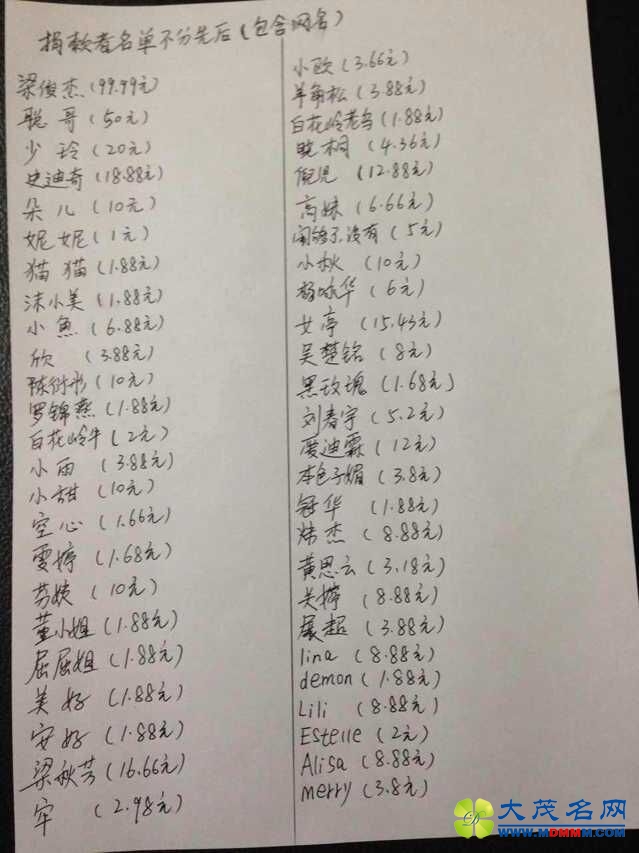 捐款者名单不分先后(包含网名)
梁俊杰(99.99元)
聪哥(50元)
少玲(20元)
史迪奇(18.88元)
朵儿(10元)
妮妮(1元)
猫猫(1.88元)
沫小美(1.88元)
小魚(6.88元)
欣(3.88元)
陈衍彤(10元)
罗锦燕(1.88元)
百花岭牛(2元)
小雨(3.88元)
小甜(10元)
空心(1.66元)
雯婷(1.68元)
芬姨(10元)
董小姐(1.88元)
屈屈姐(1.88元)
美好(1.88元)
安好(1.88元)
梁秋芳(16.66元)
牢(2.98元)
小欧(3.66元)
羊角松(3.88元)
百花岭老鸟(1.88元)
晓桐(4.36元)
倪児(12.88元)
高妹(6.66元)
没有(5元)
小秋(10元)
杨咏华(6元)
女亭(15.43元)
吴楚铭(8元)
黑玫瑰(1.68元)
刘春宇(5.2元)
廖迪霖(12元)
本色子媚(3.8元)
冠华(1.88元)
炜杰(8.88元)
黄思云(3.18元)
关婷(8.88元)
展超(3.88元)
lina(8.88元)
demon(1.88元)
Lili(8.88元)
Estelle(2元)
Alisa(8.88元)
merry(3.8元)
大茂名网
WWW.MDMMM.COM